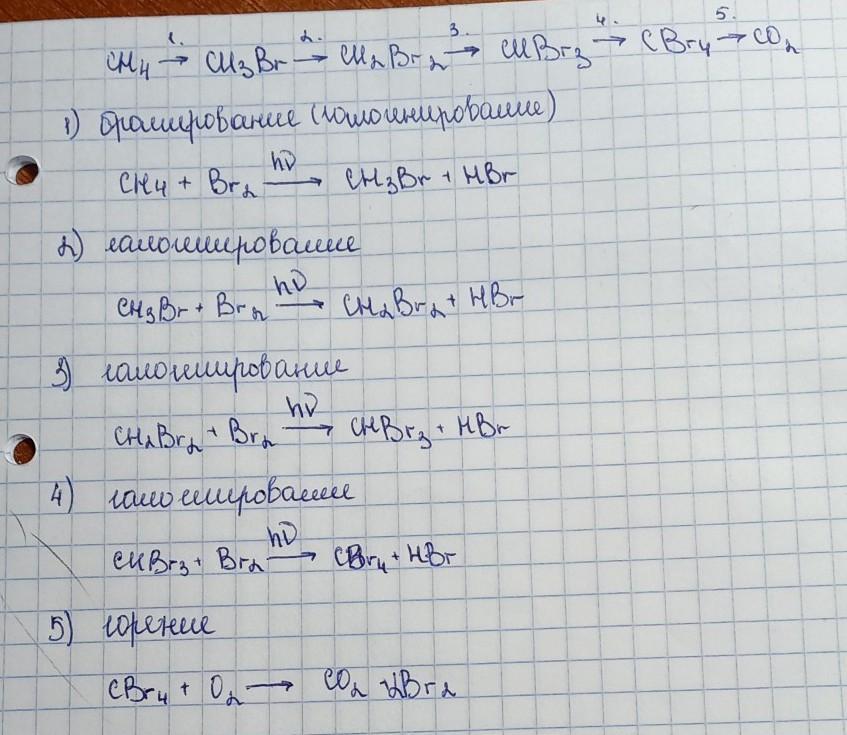 CH4 →1. CH3Br →2. CH2Br2 →3. CHBr3 →4. CBr4 →5. CO2
1) бромирование (галогенирование)
CH4 + Br2 →hν CH3Br + HBr
2) галогенирование
CH3Br + Br2 →hν CH2Br2 + HBr
3) галогенирование
CH2Br2 + Br2 →hν CHBr3 + HBr
4) галогенирование
CHBr3 + Br2 →hν CBr4 + HBr
5) горение
CBr4 + O2 → CO2 + 2Br2